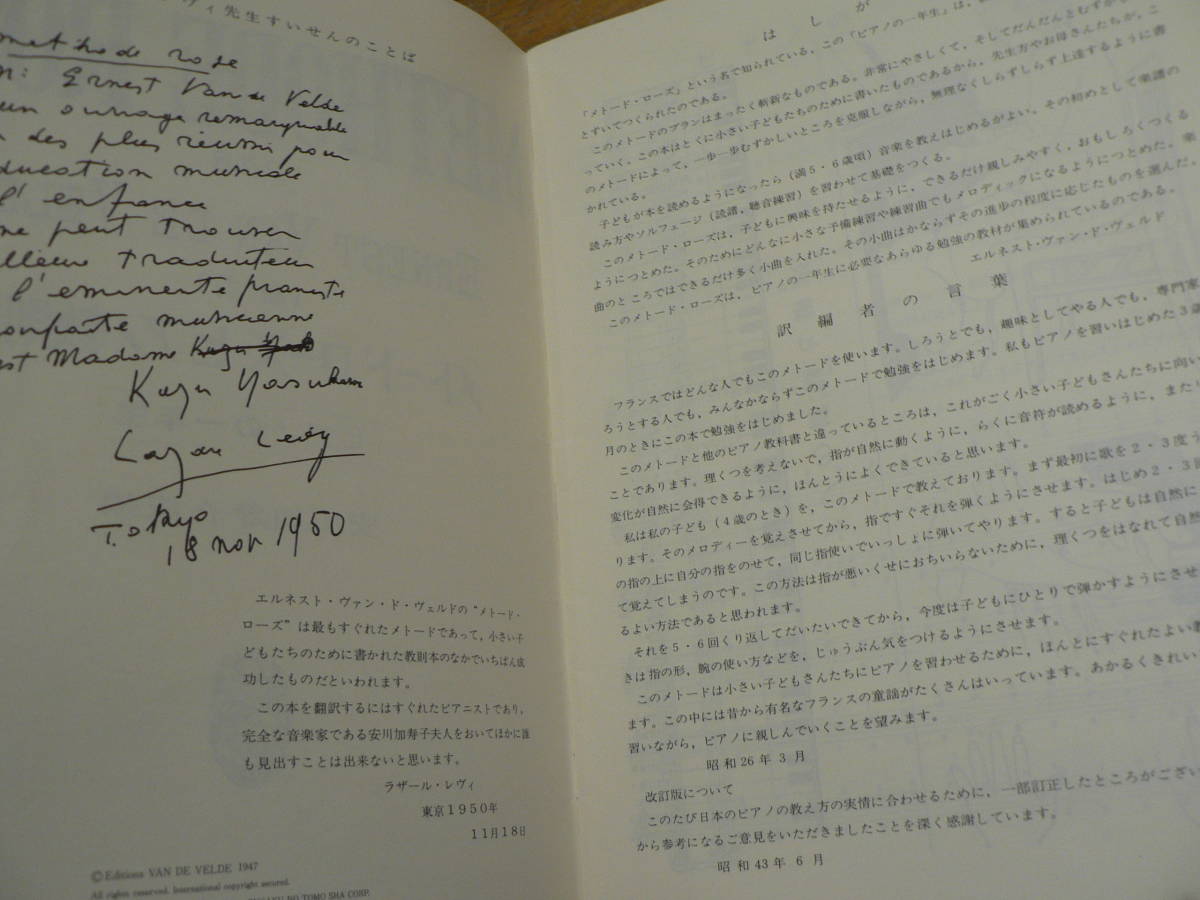 ヴィ先生すいせんのことば
methode rose
Ernest Van de Velde
un ouvrage remarquable
des plus réussi pour
musicale
l'enfance
ne peut trouver
traducteur
l'eminente pianiste
musicienne
Madame
Kazu Yasukawa
Lazare Levy
Tokyo
18 nov 1950
エルネスト・ヴァン・ド・ヴェルドの“メトード・
ローズ”は最もすぐれたメトードであって，小さい子
どもたちのために書かれた教則本のなかでいちばん成
功したものだといわれます。
この本を翻訳するにはすぐれたピアニストであり，
完全な音楽家である安川加寿子夫人をおいてほかに誰
も見出すことは出来ないと思います。
ラザール・レヴィ
東京1950年
11月18日
©Editions VAN DE VELDE 1947
All rights reserved. International copyright secured.
TOMO SHA CORP.
はしが
「メトード・ローズ」という名で知られている，この「ピアノの一年生」は，
とずいてつくられたのである。
このメトードのプランはまったく斬新なものである。非常にやさしくて，そしてだんだんとむずかし
っていく。この本はとくに小さい子どもたちのために書いたものであるから，先生方やお母さんたちが，こ
のメトードによって，一歩一歩むずかしいところを克服しながら，無理なくしらずしらず上達するように書
かれている。
子どもが本を読めるようになったら（満5・6歳頃）音楽を教えはじめるがよい。その初めとして楽譜の
読み方やソルフェージ（読譜，聴音練習）を習わせて基礎をつくる。
このメトード・ローズは，子どもに興味を持たせるように，できるだけ親しみやすく，おもしろくつくる
ようにつとめた。そのためにどんなに小さな予備練習や練習曲でもメロディックになるようにつとめた。楽
曲のところではできるだけ多く小曲を入れた。その小曲はかならずその進歩の程度に応じたものを選んだ。
このメトード・ローズは，ピアノの一年生に必要なあらゆる勉強の教材が集められているのである。
エルネスト・ヴァン・ド・ヴェルド
訳編者の言葉
フランスではどんな人でもこのメトードを使います。しろうとでも，趣味としてやる人でも，専門家
ろうとする人でも，みんなかならずこのメトードで勉強をはじめます。私もピアノを習いはじめた3歳
月のときにこの本で勉強をはじめました。
このメトードと他のピアノ教科書と違っているところは，これがごく小さい子どもさんたちに向い
ことであります。理くつを考えないで，指が自然に動くように，らくに音符が読めるように，また
変化が自然に会得できるように，ほんとうによくできていると思います。
私は私の子ども（4歳のとき）を，このメトードで教えております。まず最初に歌を2・3度う
ります。そのメロディーを覚えさせてから，指ですぐそれを弾くようにさせます。はじめ2・3回
の指の上に自分の指をのせて，同じ指使いでいっしょに弾いてやります。すると子どもは自然に
て覚えてしまうのです。この方法は指が悪いくせにおちいらないために，理くつをはなれて自然
るよい方法であると思われます。
それを5・6回くり返してだいたいできてから，今度は子どもにひとりで弾かすようにさせ
きは指の形，腕の使い方などを，じゅうぶん気をつけるようにさせます。
このメトードは小さい子どもさんたちにピアノを習わせるために，ほんとにすぐれたよい教
ます。この中には昔から有名なフランスの童謡がたくさんはいっています。あかるくきれい
習いながら，ピアノに親しんでいくことを望みます。
昭和26年3月
改訂版について
このたび日本のピアノの教え方の実情に合わせるために，一部訂正したところがござい
から参考になるご意見をいただきましたことを深く感謝しています。
昭和43年6月